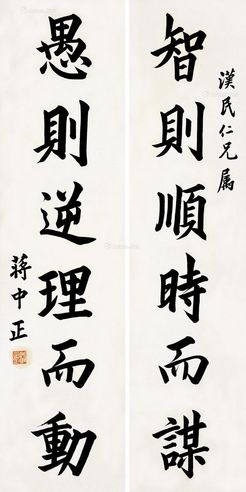 漢民仁兄属
智則順時而謀
愚則逆理而動
蔣中正